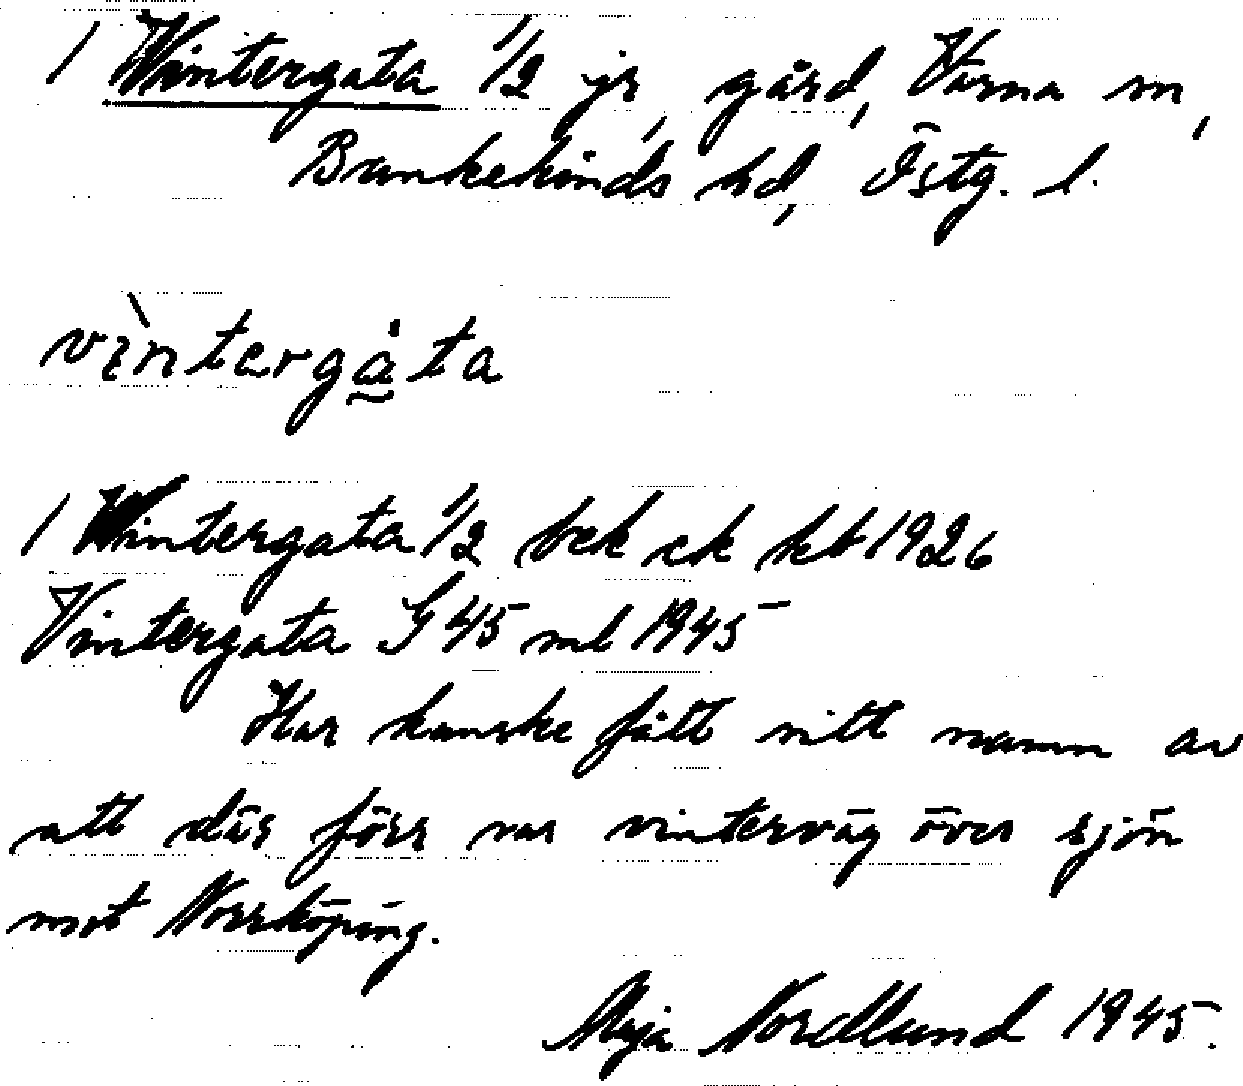 / Wintergata 1/2 jr, gård, Värna sn,
Bankekinds hd, Östg. l.
vìnterga̰ta
/ Wintergata 1/2 bek ek kbt 1926
Vintergata G 45 ml 1945
Har kanske fått sitt namn av
att där förr var vinterväg över sjön
mot Norrköping.
Maja Nordlund 1945.